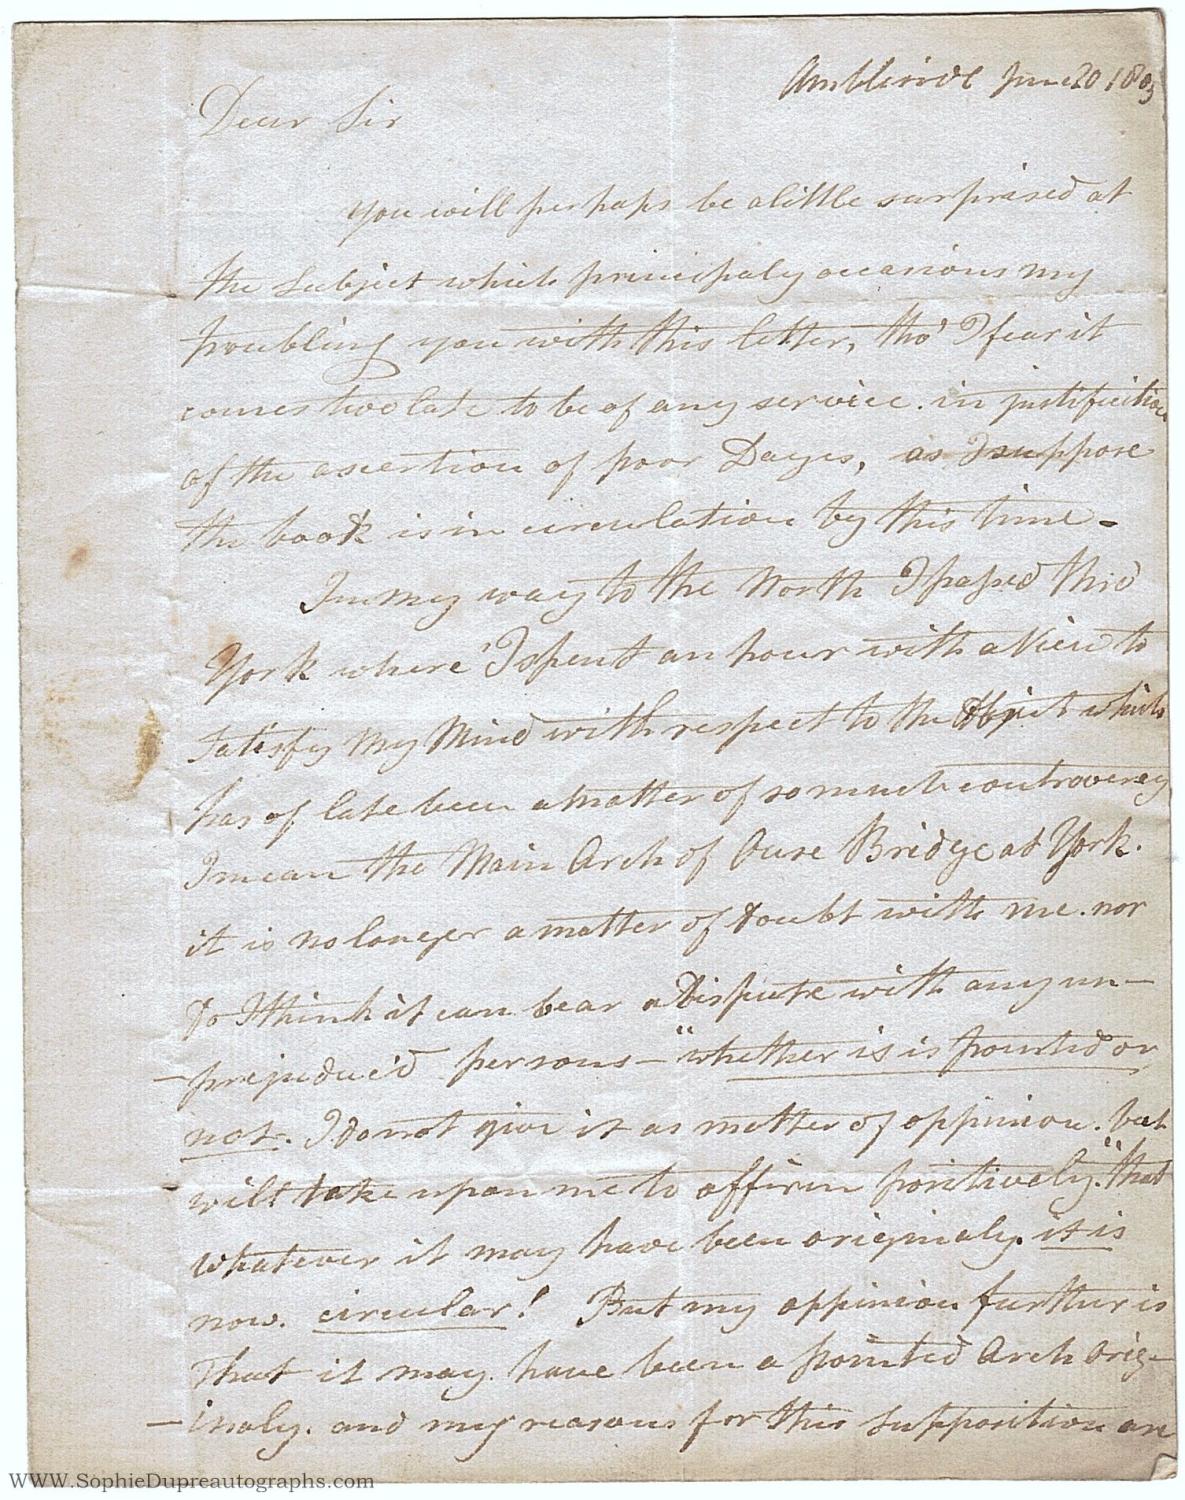 Ambleside June 20 1805
Dear Sir
you will perhaps be a little surprised at
the Subject which principaly occasions my
troubling you with this letter, tho' I fear it
comes two late to be of any service. in justification
of the assertion of poor Dayes, as I suppose
the book is in circulation by this time -
In my way to the North I passed thro'
York where I spent an hour with a View to
Satisfy my Mind with respect to the Object which
has of late been a matter of so much controversy
I mean the Main Arch of Ouse Bridge at York.
it is no longer a matter of Doubt with me. nor
Do I think it can bear a Dispute with any un-
-prejudic'd persons - "whether is is pointed or
not. I do not give it as matter of oppinion. but
will take upon me to affirm positively. "that
whatever it may have been originaly. it is
now. circular! But my oppinion further is
That it may have been a pointed Arch Orig-
-inaly. and my reasons for this Supposition are
WWW.SophieDupreautographs.com